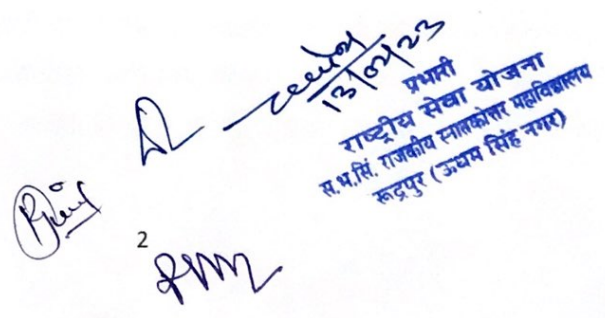 13/02/23
प्रभारी
राष्ट्रीय सेवा योजना
स.भ.सिं. राजकीय स्नातकोत्तर महाविद्यालय
रूद्रपुर (ऊधम सिंह नगर)
2